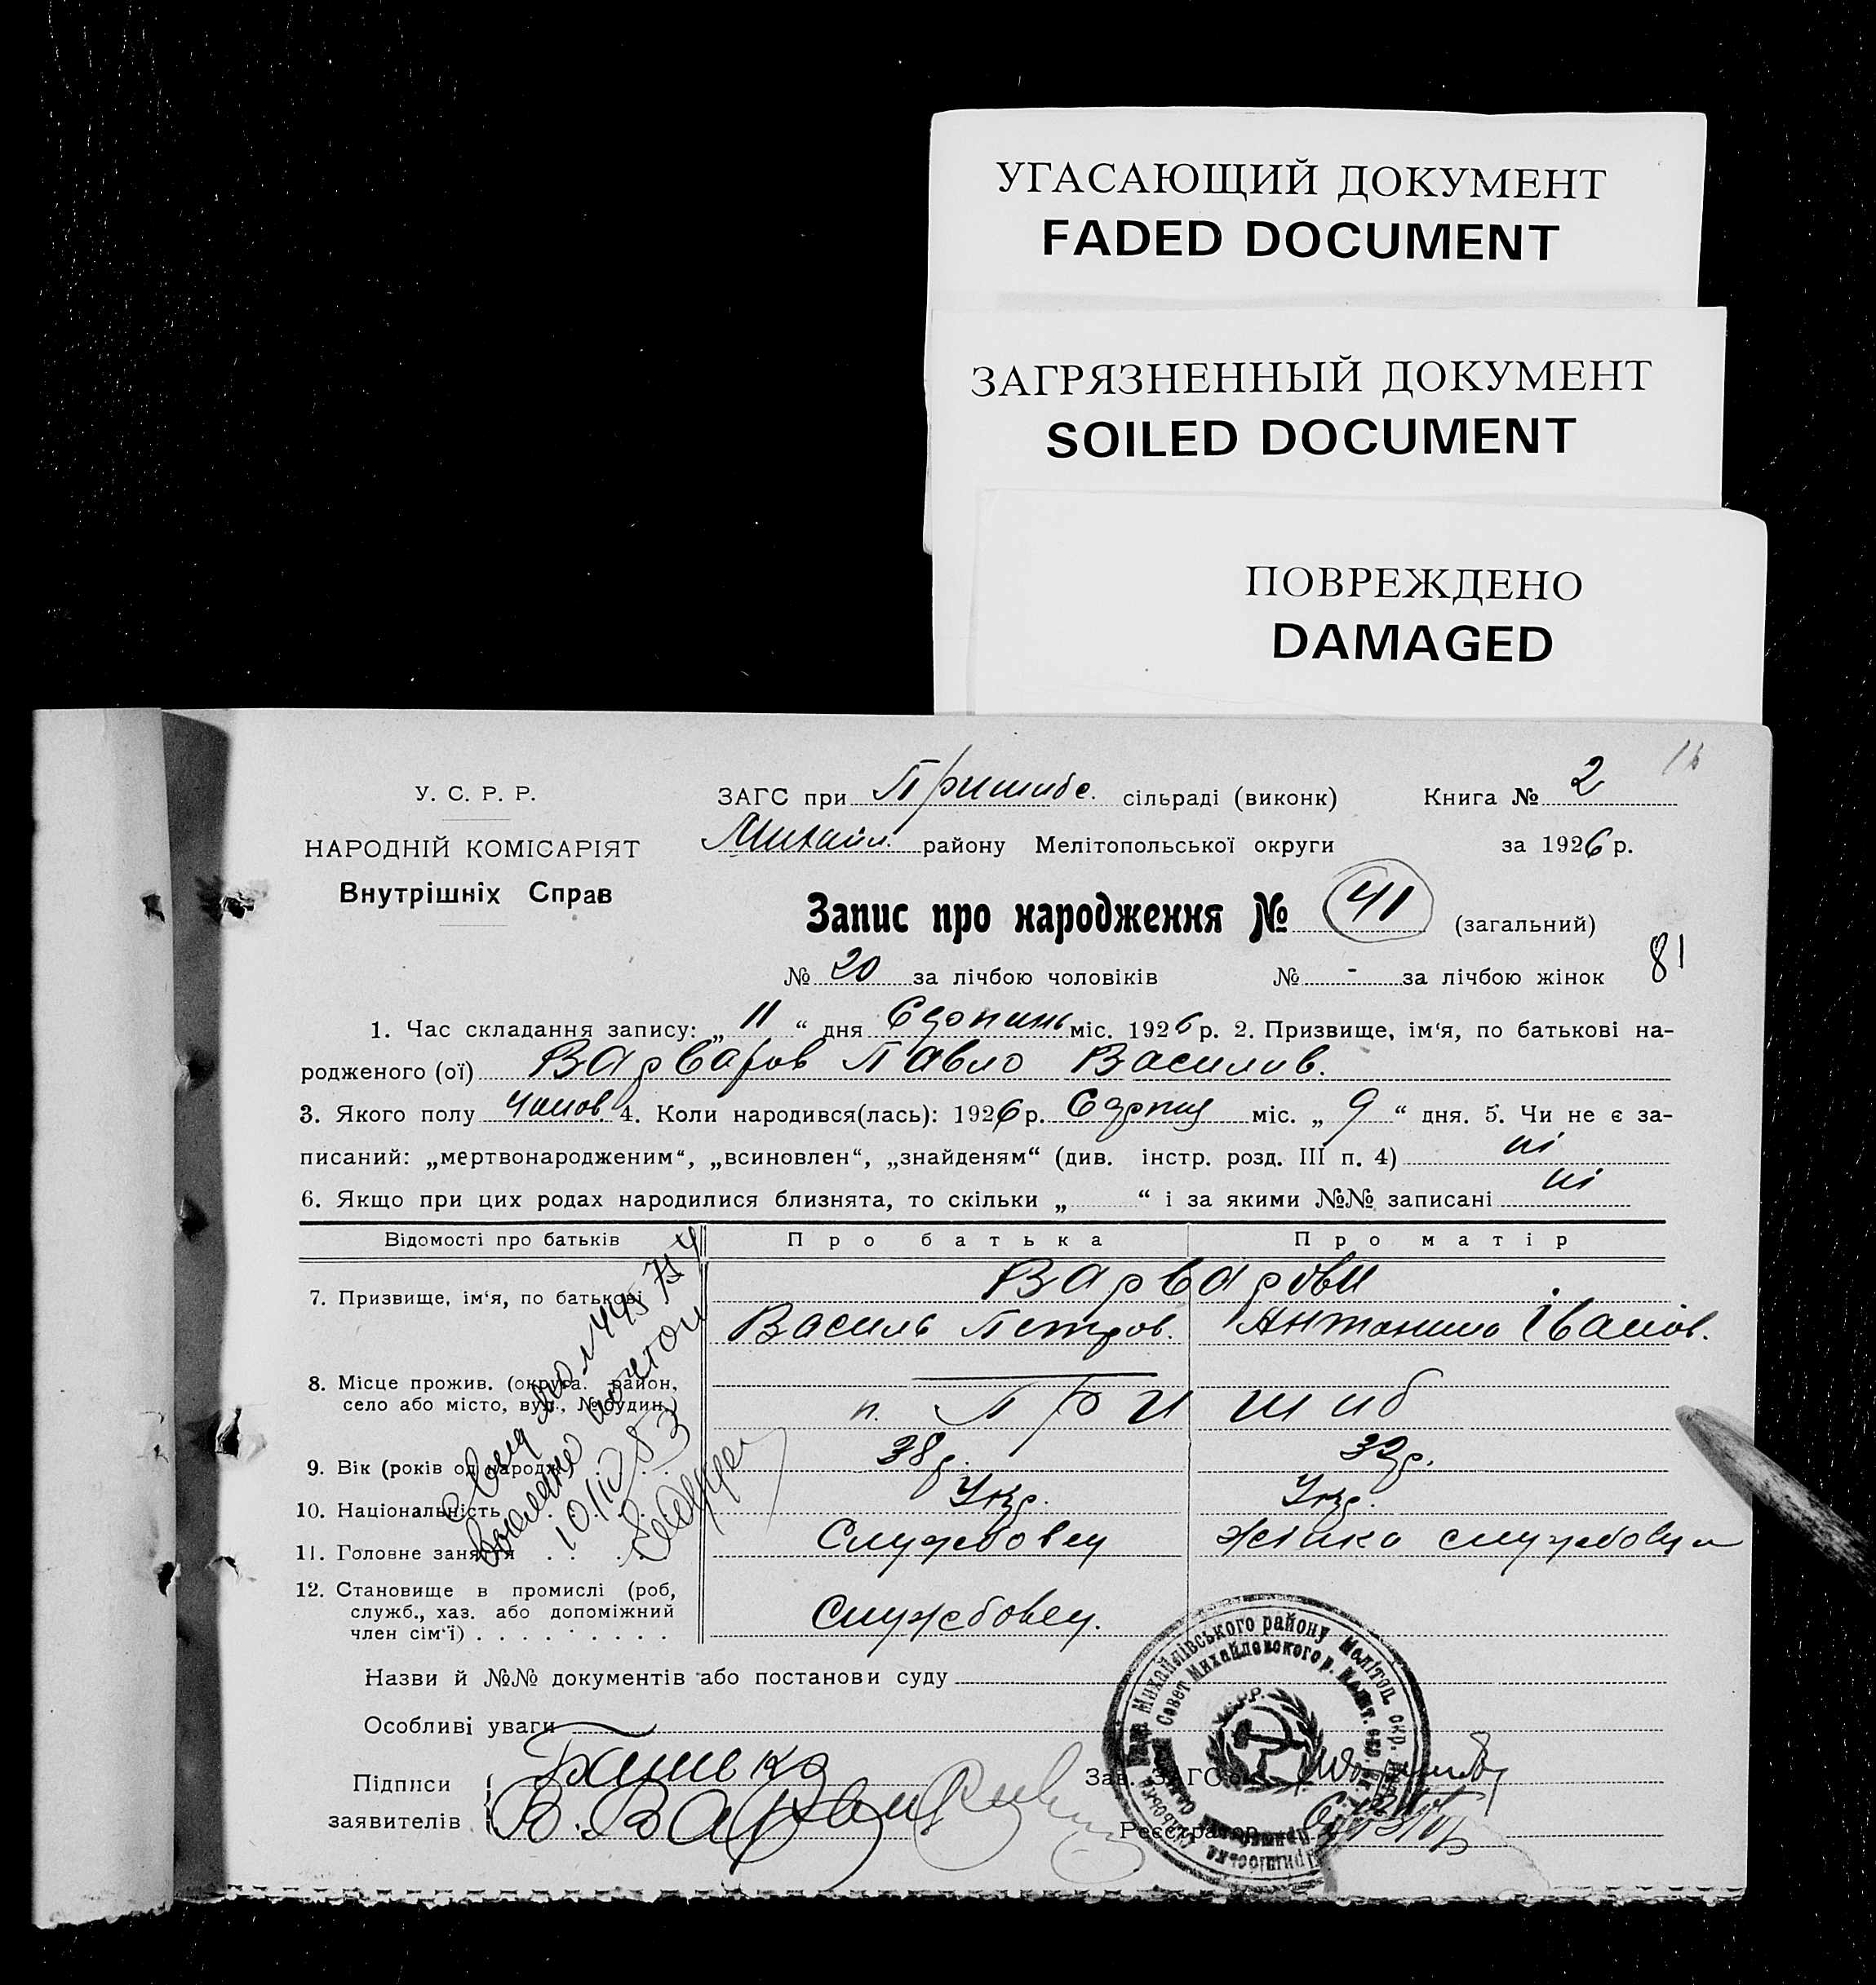 УГАСАЮЩИЙ ДОКУМЕНТ
FADED DOCUMENT
ЗАГРЯЗНЕННЫЙ ДОКУМЕНТ
SOILED DOCUMENT
ПОВРЕЖДЕНО
DAMAGED
У. С. Р. Р.
НАРОДНІЙ КОМІСАРІЯТ
Внутрішніх Справ
ЗАГС при Пришибс. сільраді (виконк) Книга № 2
Михайл. району Мелітопольської округи за 1926 р.
Запис про народження № 41 (загальний)
81
№ 20 за лічбою чоловіків № - за лічбою жінок
1. Час складання запису: „ 11 “ дня Серпинь міс. 1926 р. 2. Призвище, ім‘я, по батькові на-
родженого (ої) Варваров Павло Василив.
3. Якого полу чолов. 4. Коли народився(лась): 1926 р. Серпня міс. „ 9 “ дня. 5. Чи не є за-
писаний: „мертвонародженим“, „всиновлен“, „знайденям“ (див. інстр. розд. III п. 4) ні
6. Якщо при цих родах народилися близнята, то скільки „ “ і за якими №№ записані ні
Відомості про батьків Про батька Про матір
7. Призвище, ім‘я, по батькові Варварови
Василь Петров. Антонина Іванов.
8. Місце прожив. (округа, район,
село або місто, вул., № будин.) п. Пришиб
9. Вік (років од народж.) 38 р. 32 р.
10. Національність Укр. Укр.
11. Головне заняття Службовец жінка службовця
12. Становище в промислі (роб,
служб., хаз. або допоміжний
член сім‘ї) Службовец.
10/III 83
Назви й №№ документів або постанови суду
Особливі уваги
Підписи
заявителів
Батько
В. Варвар
Зав. ЗАГС‘ом
Реєстратор
Михайлівського району Мелітоп. окр.
Совет Михайловского р.